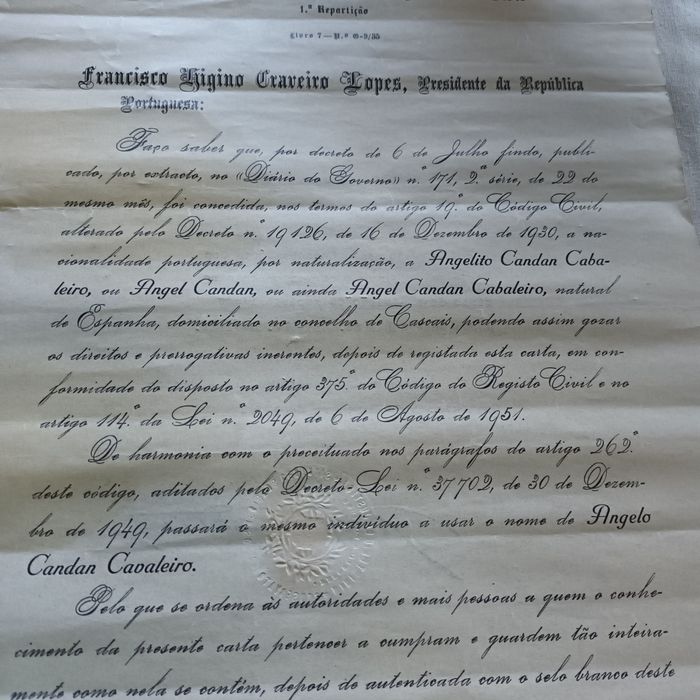 1.ª Repartição
Livro 7 — N.º G-9/35
Francisco Higino Craveiro Lopes, Presidente da República
Portuguesa:
Faço saber que, por decreto de 6 de Julho findo, publi-
cado, por extracto, no «Diário do Governo» n.º 171, 2.ª série, de 22 do
mesmo mês, foi concedida, nos termos do artigo 19.º do Código Civil,
alterado pelo Decreto n.º 19126, de 16 de Dezembro de 1930, a na-
cionalidade portuguesa, por naturalização, a Angelito Candan Caba-
leiro, ou Angel Candan, ou ainda Angel Candan Cabaleiro, natural
de Espanha, domiciliado no concelho de Cascais, podendo assim gozar
os direitos e prerrogativas inerentes, depois de registada esta carta, em con-
formidade do disposto no artigo 375.º do Código do Registo Civil e no
artigo 114.º da Lei n.º 2049, de 6 de Agosto de 1951.
De harmonia com o preceituado nos parágrafos do artigo 262.º
deste código, aditados pelo Decreto-Lei n.º 37702, de 30 de Dezem-
bro de 1949, passará o mesmo indivíduo a usar o nome de Angelo
Candan Cavaleiro.
Pelo que se ordena às autoridades e mais pessoas a quem o conhe-
cimento da presente carta pertencer a cumpram e guardem tão inteira-
mente como nela se contém, depois de autenticada com o selo branco deste